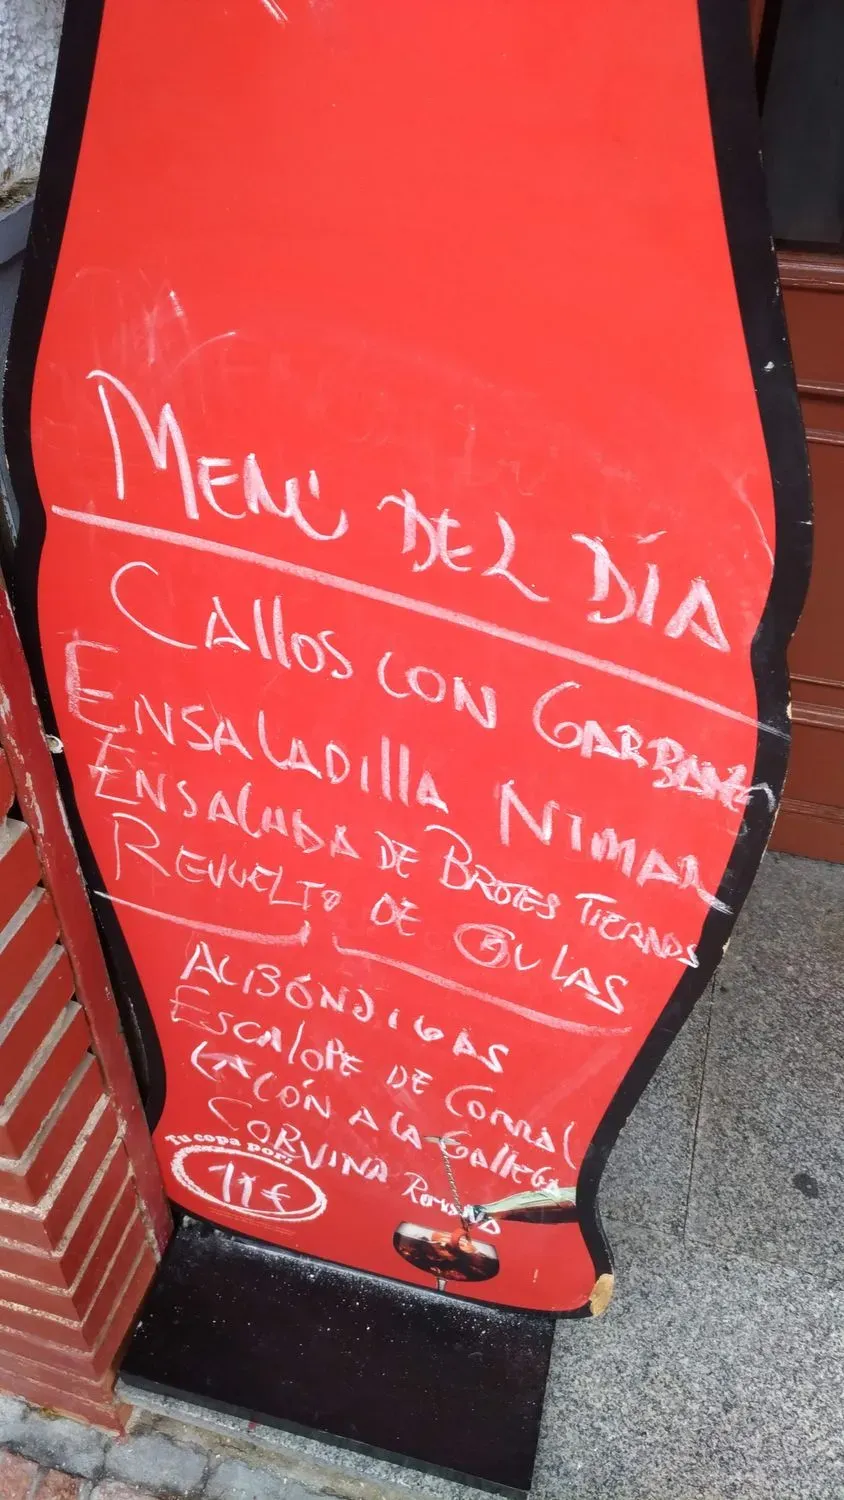 MENÚ DEL DÍA
CAllOS CON GARBANZO
ENSALADIllA NIMAR
ENSALADA DE BROTES TIERNOS
REVUELTO DE GULAS
ALBÓNDIGAS
ESCALOPE DE CORRAL
LACÓN A LA GALLEGA
CORVINA ROMANA
Tu copa por:
11€